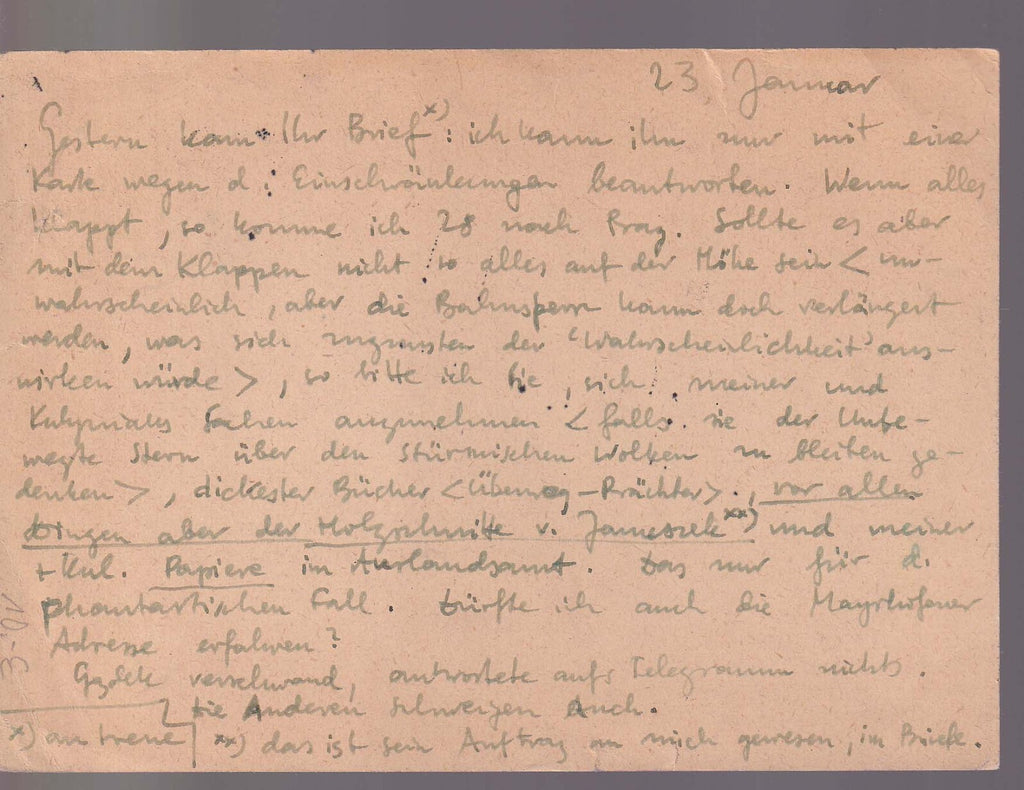 23. Januar
Gestern kam Ihr Brief x) : ich kann ihn nur mit einer
Karte wegen d. Einschränkungen beantworten. Wenn alles
klappt, so komme ich 28 nach Prag. Sollte es aber
mit dem Klappen nicht so alles auf der Höhe sein < un-
wahrscheinlich, aber die Bahnsperre kann doch verlängert
werden, was sich zugunsten der 'Wahrscheinlichkeit' aus-
wirken würde >, so bitte ich Sie, sich meiner und
Sachen anzunehmen < falls Sie der Unbe-
wegte Stern über den Stürmischen Wolken zu bleiben ge-
denken >, dickester Bücher < Überweg-Prächter >, vor allen
Dingen aber der Holzschnitte v. xx) und meiner
+ Kul. Papiere im Auslandsamt. Das nur für d.
phantastischen Fall. Dürfte ich auch die Mayrhofener
Adresse erfahren?
verschwand, antwortete aufs Telegramm nichts.
Die Anderen schweigen auch.
x) an xx) das ist sein Auftrag an mich gewesen, im Briefe.